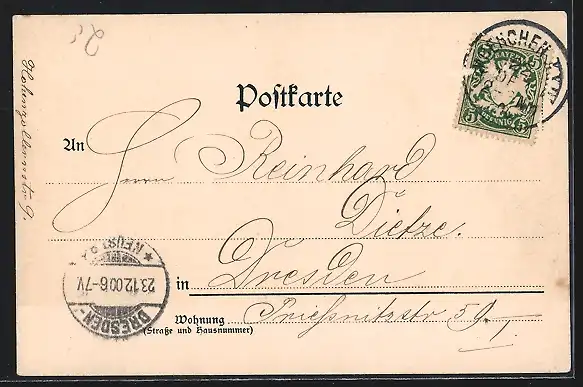 Postkarte
An
Herrn Reinhard
Dietze.
in Dresden
Wohnung
(Straße und Hausnummer)
Prießnitzstr 59.
Hohenzollernstr 9.
BAYERN
5 5
PFENNIG
MUENCHEN
DRESDEN-
23.12.00.6-7V.
* NEUST.
25